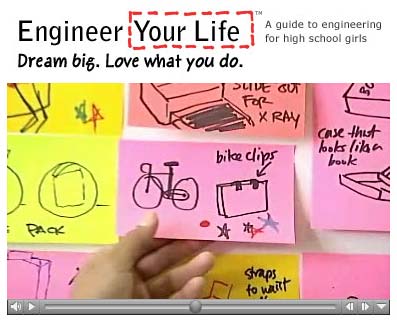 Engineer Your Life™
A guide to engineering
for high school girls
Dream big. Love what you do.
SLIDE OUT
FOR
X RAY
case that
looks like a
book
bike clips
PACK
straps
to waist